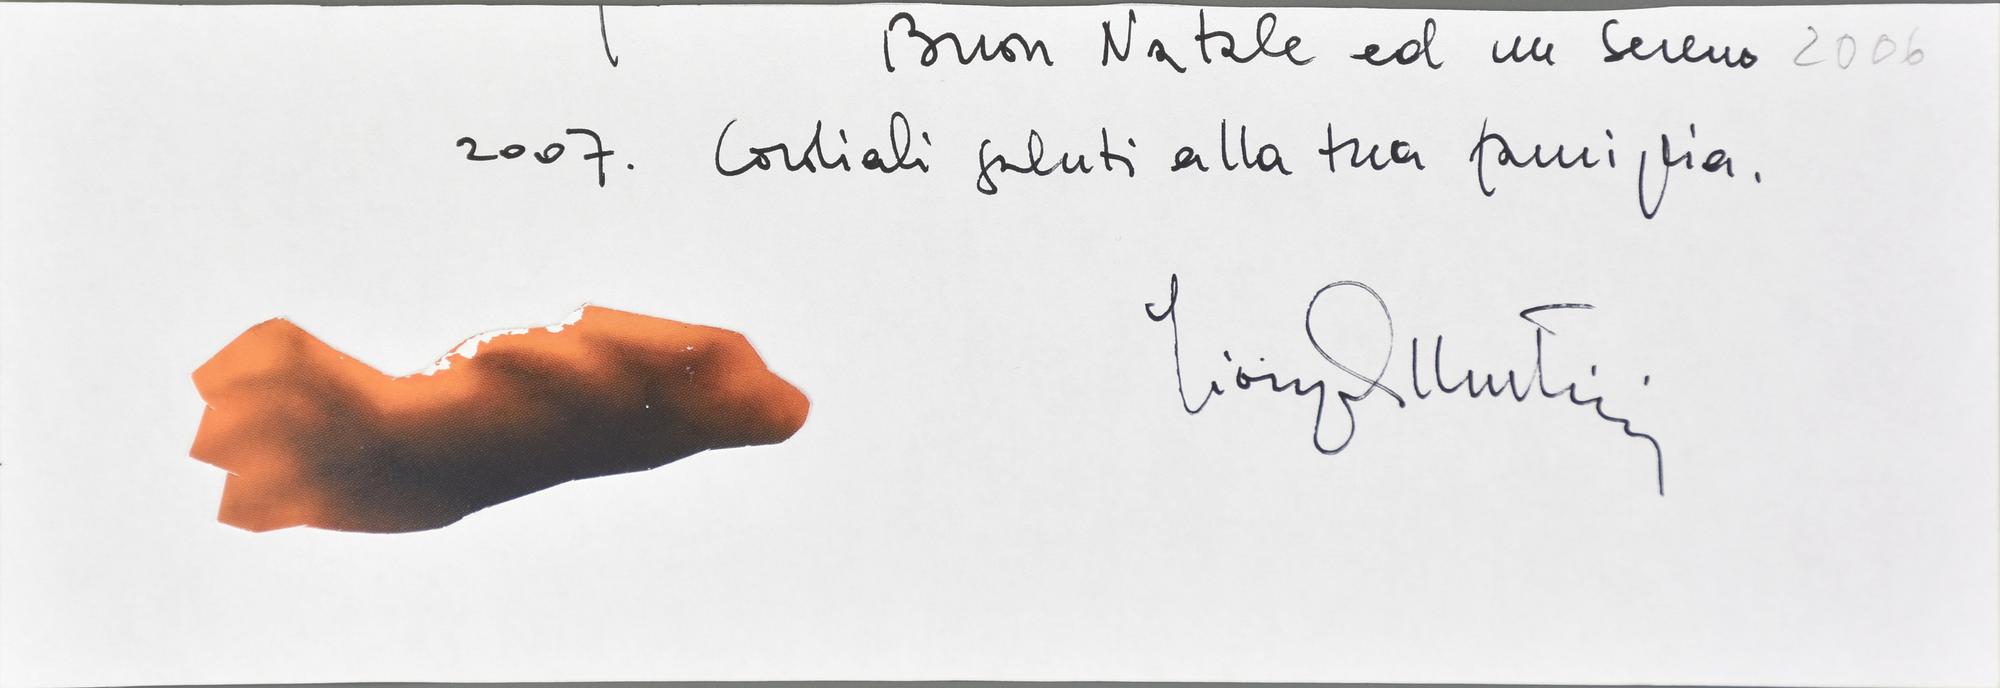 Buon Natale ed un sereno 2006
2007. Cordiali saluti alla tua famiglia.